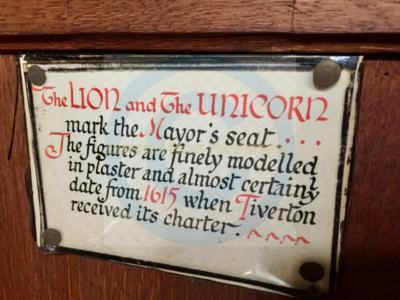 The LION and The UNICORN
mark the Mayor's seat....
The figures are finely modelled
in plaster and almost certainly
date from 1615 when Tiverton
received its charter.